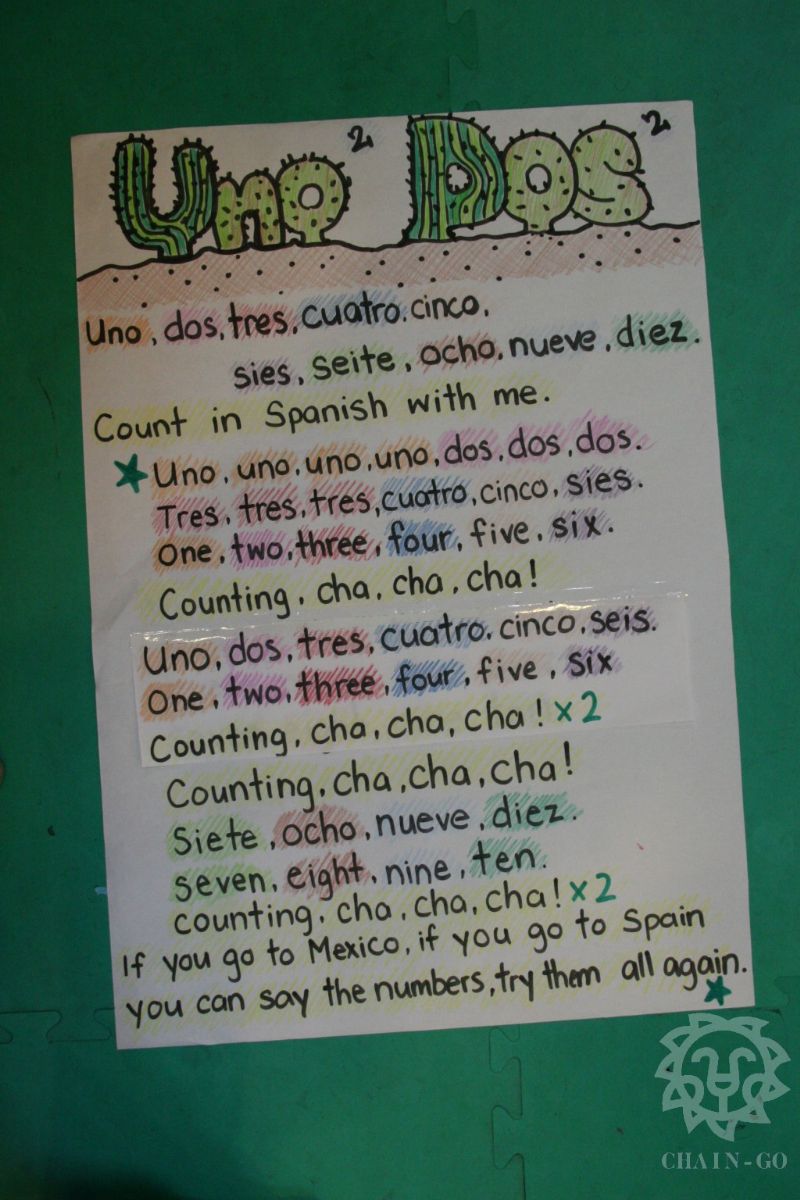 Uno ² Dos ²
Uno, dos, tres, cuatro. cinco,
sies, seite, ocho, nueve, diez.
Count in Spanish with me.
★ Uno, uno, uno, uno, dos, dos, dos.
Tres, tres, tres, cuatro, cinco, sies.
One, two, three, four, five, six.
Counting, cha, cha, cha!
Uno, dos, tres, cuatro. cinco, seis.
One, two, three, four, five, six
Counting, cha, cha, cha! x2
Counting, cha, cha, cha!
Siete, ocho, nueve, diez.
seven, eight, nine, ten.
counting, cha, cha, cha! x2
If you go to Mexico, if you go to Spain
you can say the numbers, try them all again.
★
CHAIN-GO